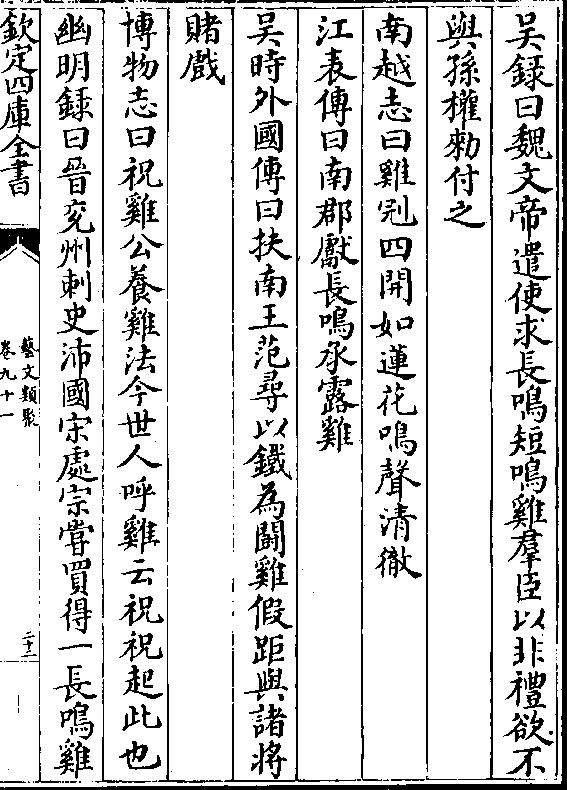 吴録曰魏文帝遣使求長鳴短鳴雞羣臣以非禮欲不
與孫權勑付之
南越志曰雞冠四開如蓮花鳴聲清徹
江表傳曰南郡獻長鳴承露雞
吴時外國傳曰扶南王范尋以鐵為鬪雞假距與諸將
賭戯
博物志曰祝雞公養雞法今世人呼雞云祝祝起此也
幽明録曰晉兖州刺史沛國宋處宗嘗買得一長鳴雞
欽定四庫全書
藝文類聚
卷九十一
二十三